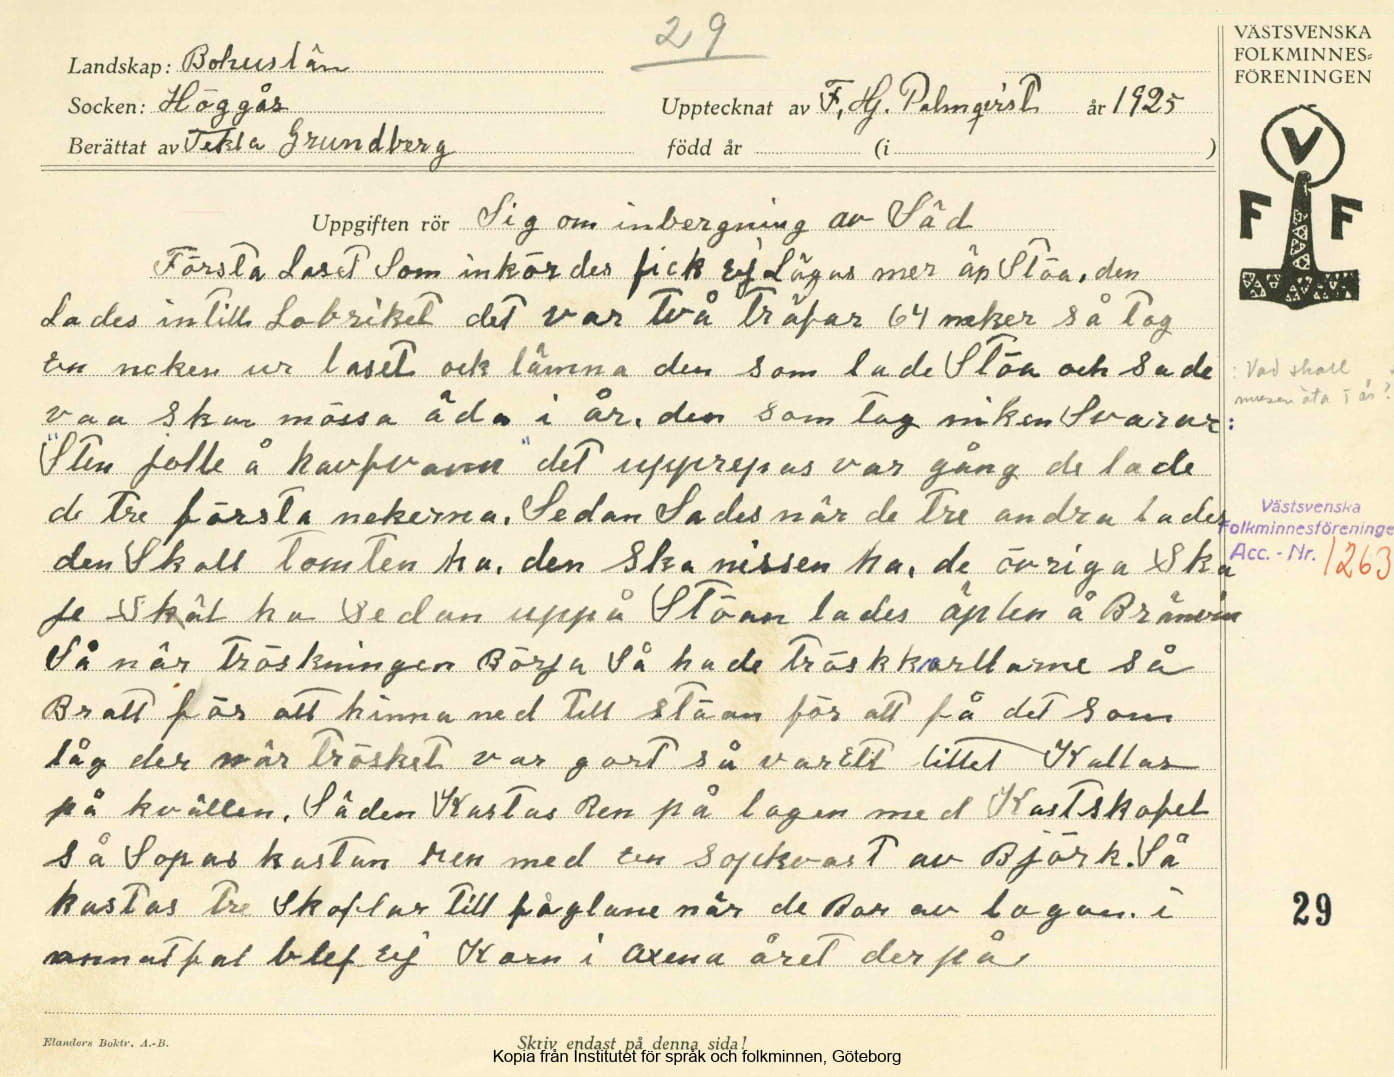 29
VÄSTSVENSKA
FOLKMINNES-
FÖRENINGEN
Landskap: Bohuslän
Socken: Höggås
Upptecknat av F. Hj. Palmqvist år 1925
Berättat av Tekla Grundberg
född år (i )
V
F F
Uppgiften rör Sig om inbergning av Säd
Första Laset Som inkördes fick Eij Lägas mer äp Stöa, den
Lades intill Lobriket det var två träfvar 64 neker så tog
en neken ur laset ock lämna den som lade Stöa och sade
vaa ska mössa äda i år, den som tog niken Svarar:
"Sten jolle å havfvann" det upprepas var gång de lade
de tre första nekerna. Sedan Lades när de tre andra lades
den Skall tomten ha, den ska nissen ha, de övriga Ska
je skäl ha sedan uppå Stöan lades äplen å Bränvin
Så när tröskningen Börja Så hade tröskkarllarne så
Bratt för att hinna ned till stöan för att få det som
låg der när trösket var gort så var Ett littet Kallas
på kvällen. Säden Kastas Ren på logen med Kastskofel
så Sopas kastan ren med en sopkvast av Björk. Så
kastas tre Skoflar till fåglane när de Bar av logan. i
annat fal blef Eij Korn i axena året derpå
: Vad skall
musen äta i år?
Västsvenska
Folkminnesföreningen
Acc.-Nr. 1263
29
Elanders Boktr. A.-B.
Skriv endast på denna sida!
Kopia från Institutet för språk och folkminnen, Göteborg